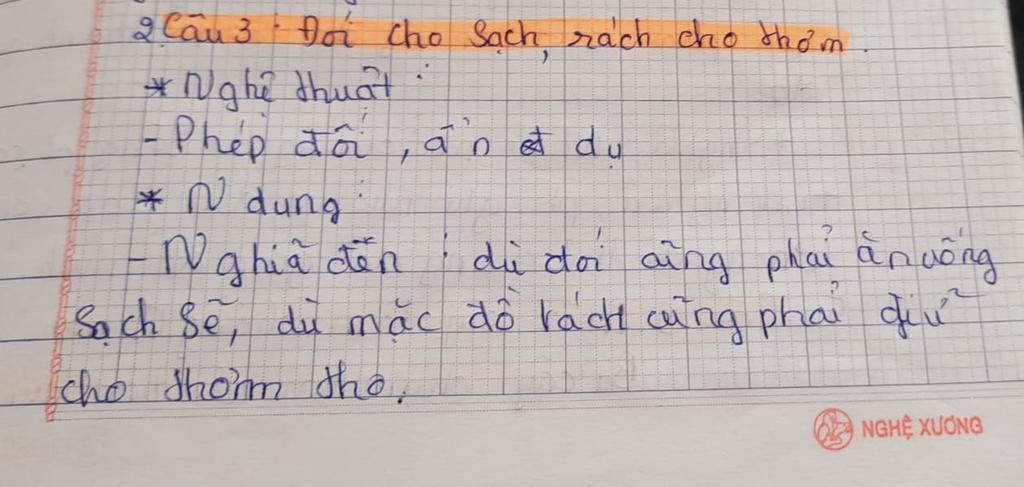 2 Câu 3 : Đói cho sạch, rách cho thơm.
* Nghệ thuật :
- Phép đối, ẩn dụ
* N dung :
- Nghiã đen : dù đói cũng phải ăn uống
sạch sẽ, dù mặc đồ rách cũng phải giữ
cho thơm tho.
NGHỆ XƯƠNG